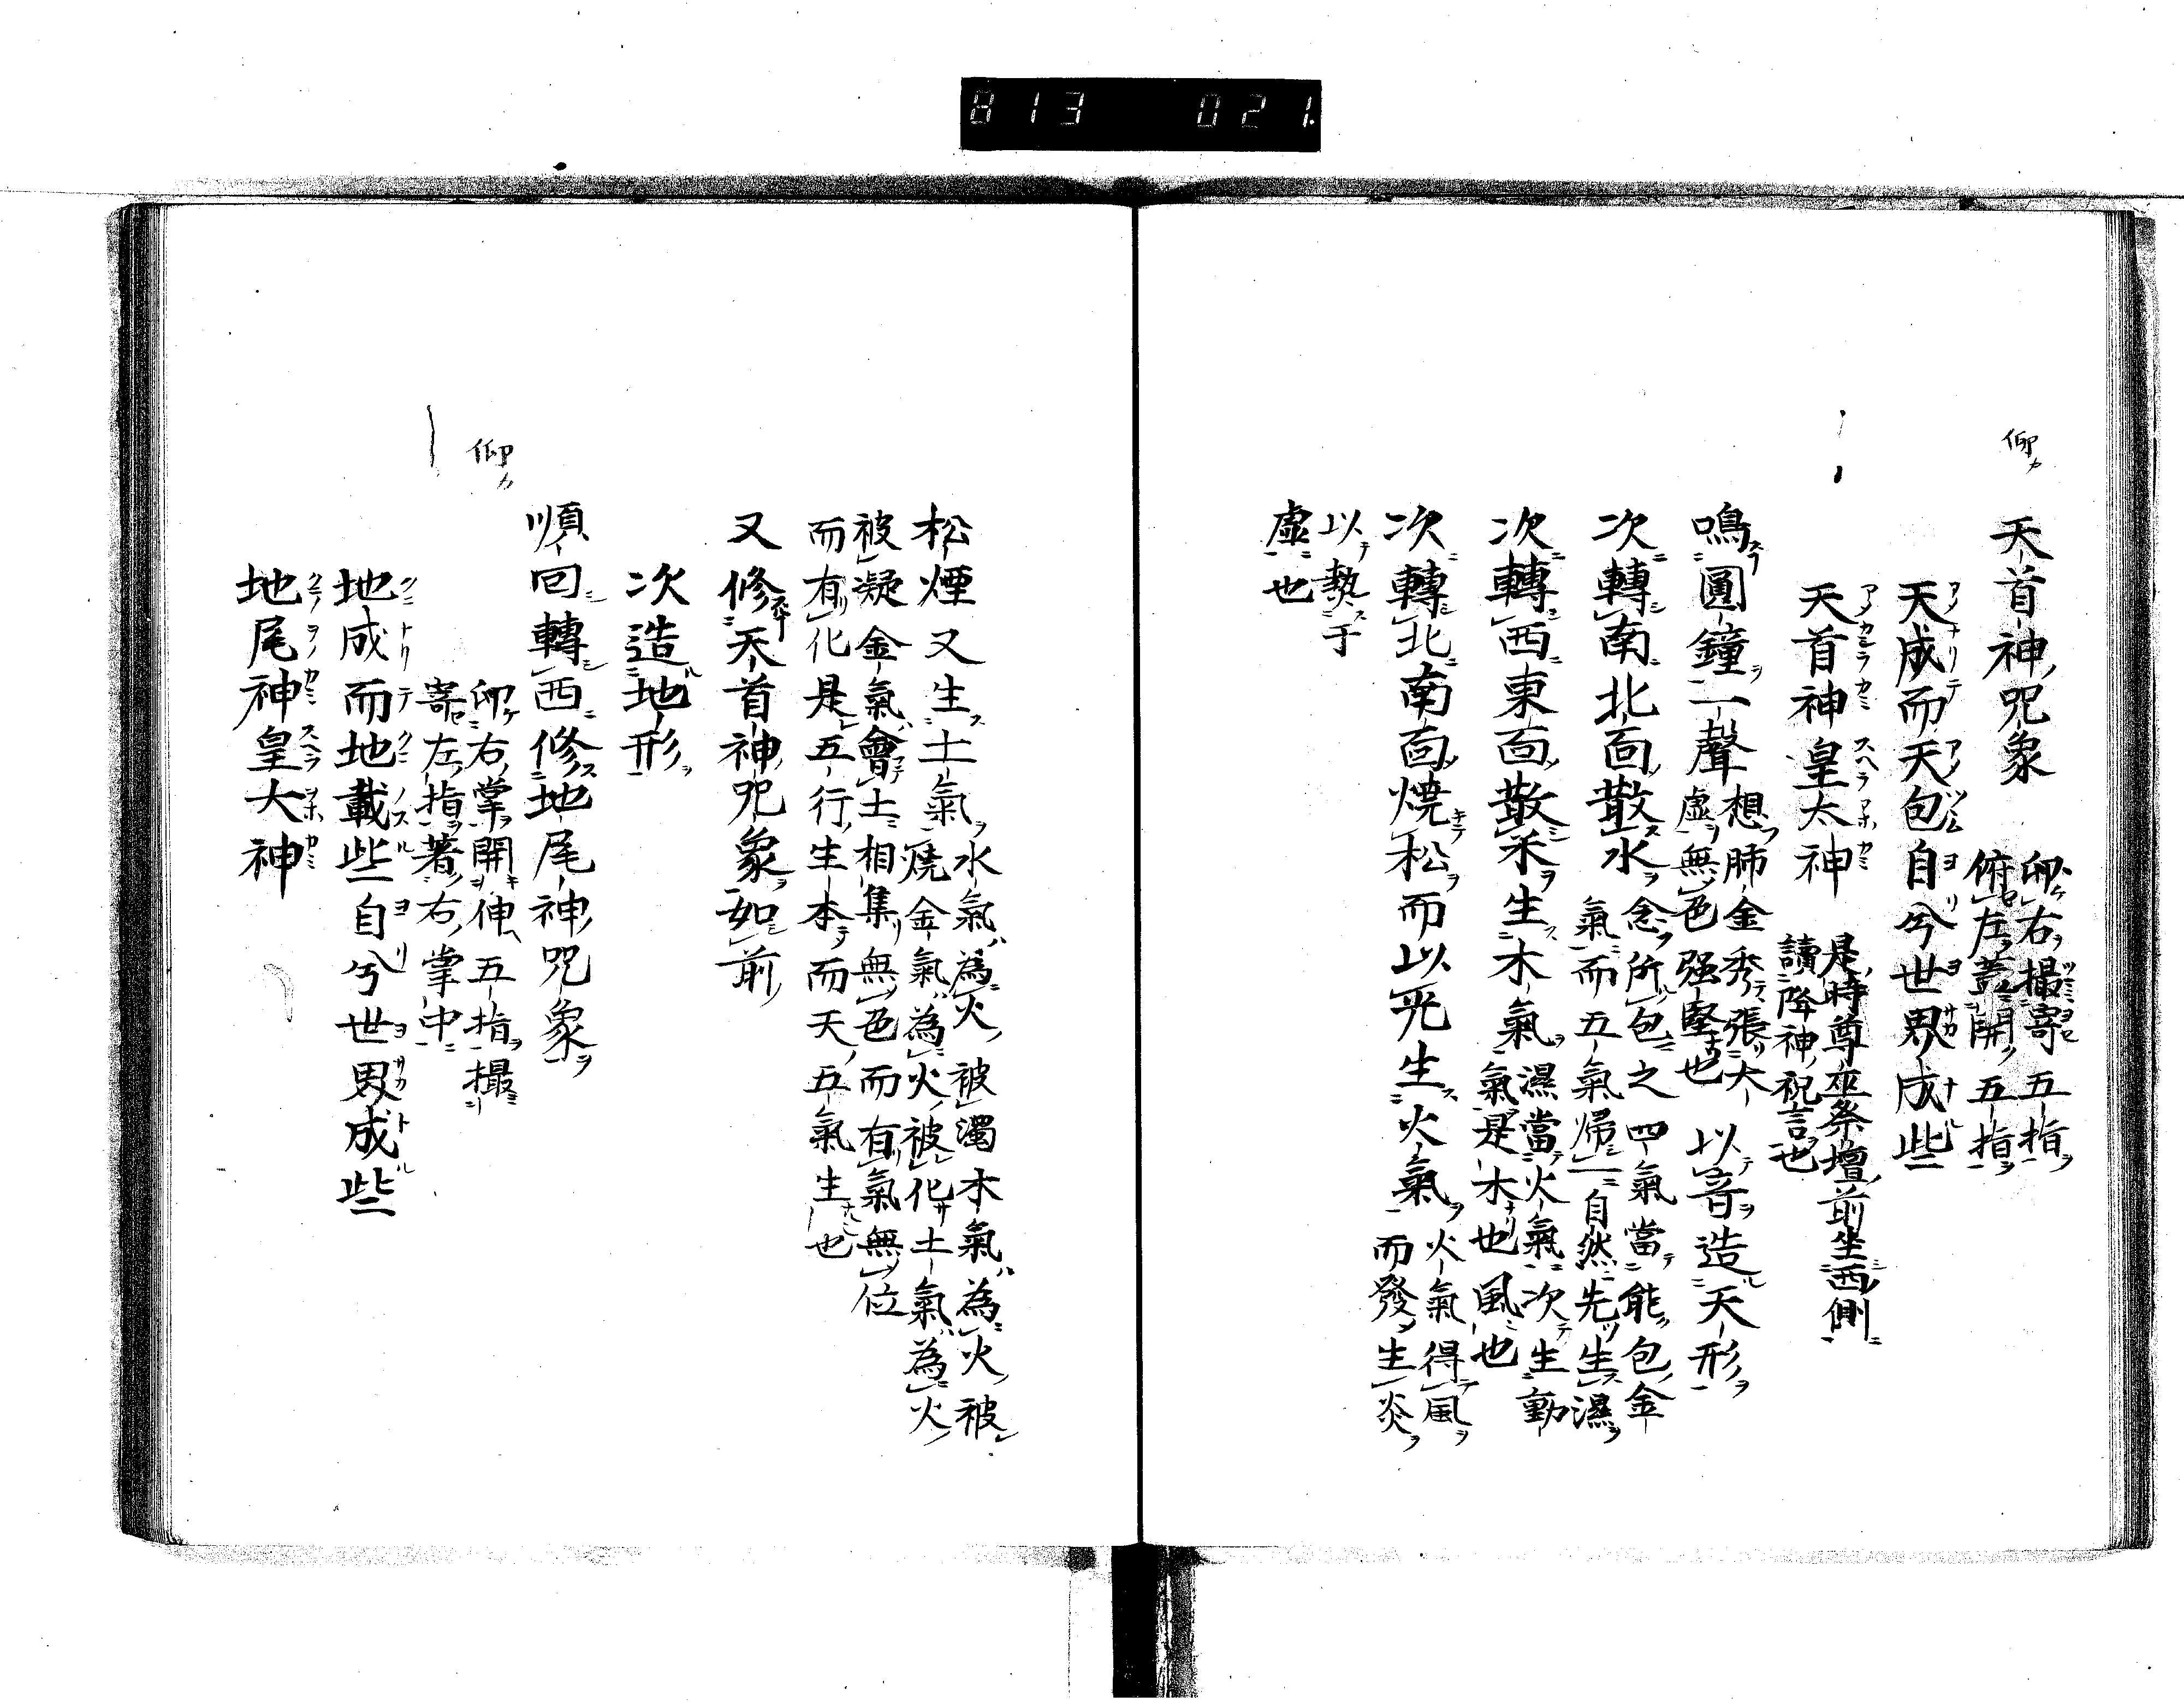 813 021
仰カ
天首神咒象
卬右撮寄五指
俯左蓋開五指
天成而天包自兮世界成些
天首神皇太神
是時尊巫祭壇前坐西側
讀降神祝言也
鳴圓鐘一聲
想肺金秀張大
虛無色强堅也
以音造天形
次轉南北面散水
念所包之四氣當能包金
氣而五氣帰一自然先生濕
次轉西東面散米生木氣
濕當火氣次生動
氣是木也風也
次轉北南面焼松而以光生火氣
火氣得風
而發生炎
以熱于
虛也
松煙又生土氣
水氣為火被濁木氣為火被
燒金氣為火被化土氣為火
被凝金氣會土相集無色而有氣無位
而有化是五行生本而天五氣生也
又修天首神咒象如前
次造地形
順回轉西修地尾神咒象
仰カ
卬右掌開伸五指撮
寄左指著右掌中
地成而地載些自兮世界成些
地尾神皇大神